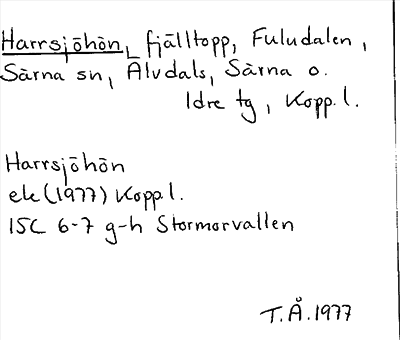 Harrsjöhön, fjälltopp, Fuludalen,
Särna sn, Älvdals, Särna o.
Idre tg, Kopp.l.
Harrsjöhön
ek (1977) Kopp.l.
15C 6-7 g-h Stormorvallen
T.Å.1977